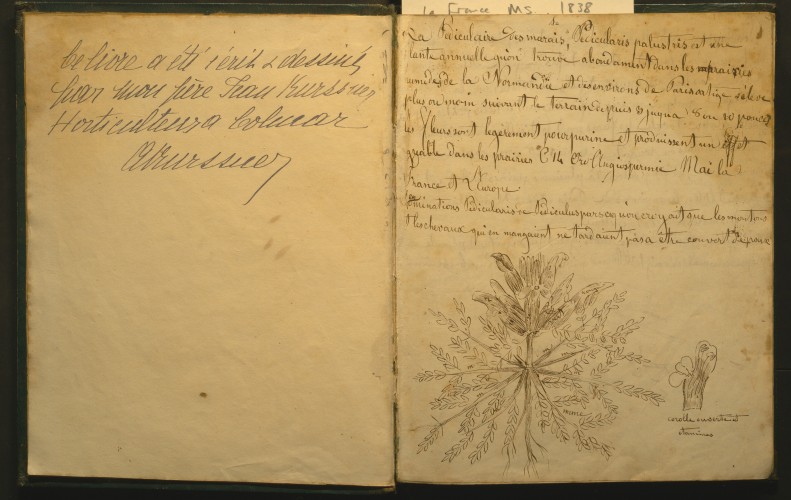 Ce livre a été écrit & dessiné
par mon père Jean Kurssner
Horticulteur a Colmar
la France MS. 1838
La Pediculaire des marais, Pédicularis palustris est une
plante annuelle qu'on trouve abondament dans les marais
humides de la Normandie et des environs de Paris sa tige s'élève
plus ou moin suivant le terrain depuis 3 juqua 8 ou 10 pouces
les fleurs sont legerement pourpurine et produissent un effet
dans les prairies Cl 14 Angispermie Mai la
France et L'Europe
Pédicularis de Pédiculus parcequ'on croyait que les moutons
et les chevaux qui en mangaient ne tardaient pas a être couvert de poux
corolle ouverte et
étamines